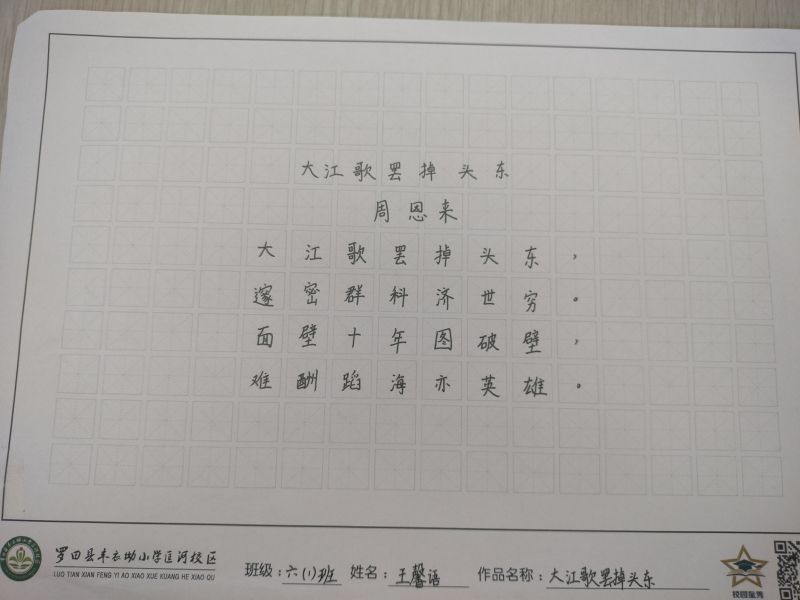 大江歌罢掉头东
周恩来
大江歌罢掉头东，
邃密群科济世穷。
面壁十年图破壁，
难酬蹈海亦英雄。
罗田县丰衣坳小学匡河校区
LUO TIAN XIAN FENG YI AO XIAO XUE KUANG HE XIAO QU
班级：六(1)班 姓名：王馨语 作品名称：大江歌罢掉头东
校园童秀